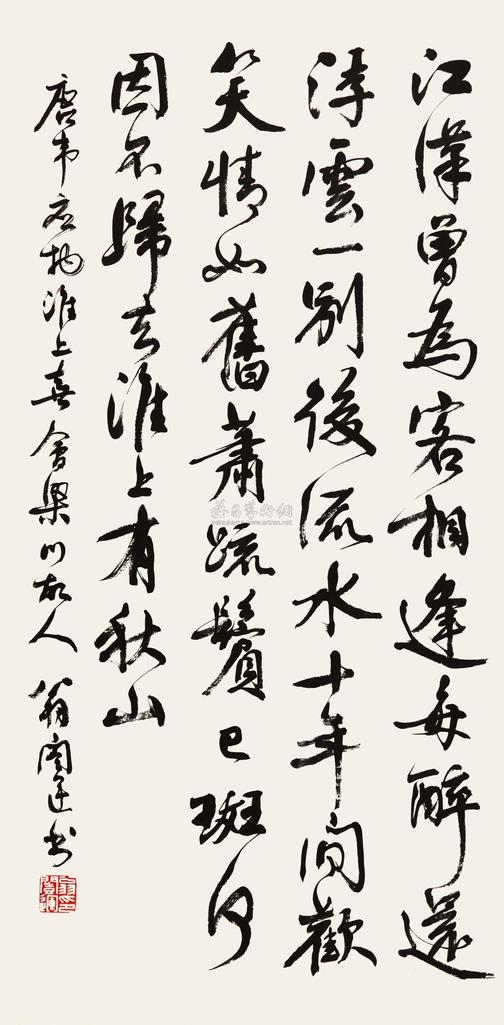 江漢曾為客相逢每醉還
浮雲一別後流水十年間歡
笑情如舊蕭疏鬢已斑何
因不歸去淮上有秋山
唐韦应物淮上喜會梁川故人 翁闿运书